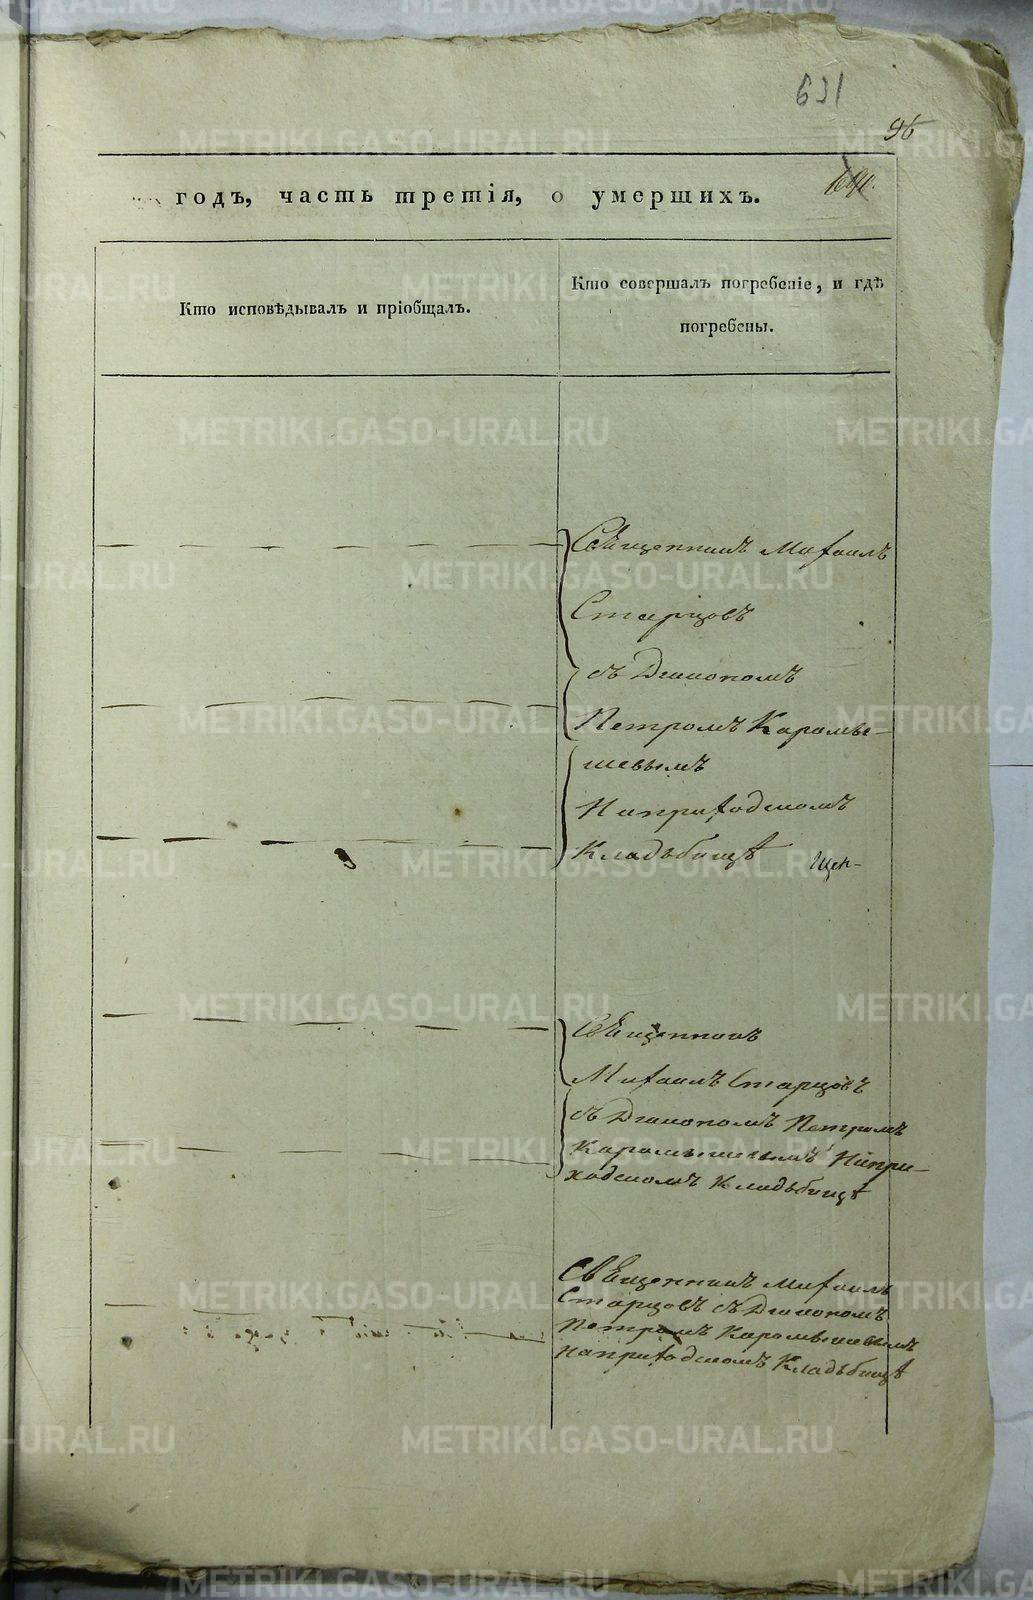 631
96
годъ, часть третія, о умершихъ.
Кто исповѣдывалъ и пріобщалъ.
Кто совершалъ погребеніе, и гдѣ
погребены.
Священникъ Михаилъ
Старцовъ
съ Дьякономъ
Петромъ Карамы-
шевымъ
На приходскомъ
Кладьбищѣ
Священникъ
Михаилъ Старцовъ
съ Дьякономъ Петромъ
Карамышевымъ На при-
ходскомъ Кладьбищѣ
Священникъ Михаилъ
Старцовъ съ Дьякономъ
Петромъ Карамышевымъ
на приходскомъ Кладьбищѣ
METRIKI.GASO-URAL.RU